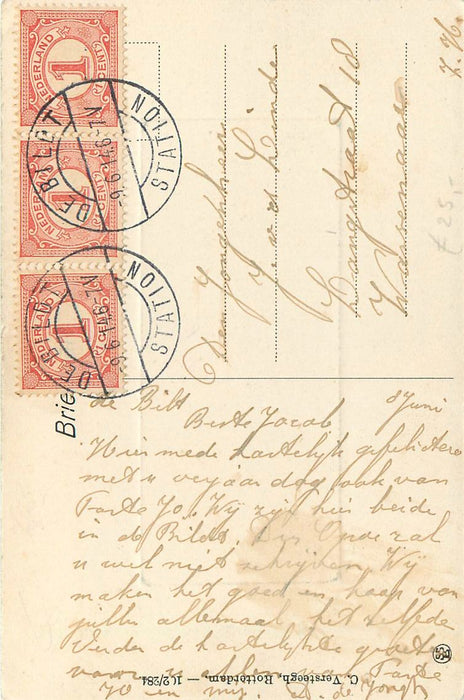 NEDERLAND
1
CENT
NEDERLAND
1
CENT
NEDERLAND
1
CENT
DE BILT STATION
9.6.14.6-7V
DE BILT STATION
9.6.14.6-7V
Den Jongeheer
J v d Linde
Langstraat 18
Wassenaar
Z. H.
€ 25,-
Brie
de Bilt 8 Juni
Beste Jacob
Hiermede hartelijk gefeliciteer
met u verjaardag ook van
Tante Jo. Wij zijn hier beide
in de Bildt. Opoe zal
u wel niet schrijven Wij
maken het goed en hoop van
jullie allemaal het zelfde
Verder de hartelijkste groete
voor u allemaal Tante
Jo en mij
C. Versteegh, Rotterdam. — 102/284